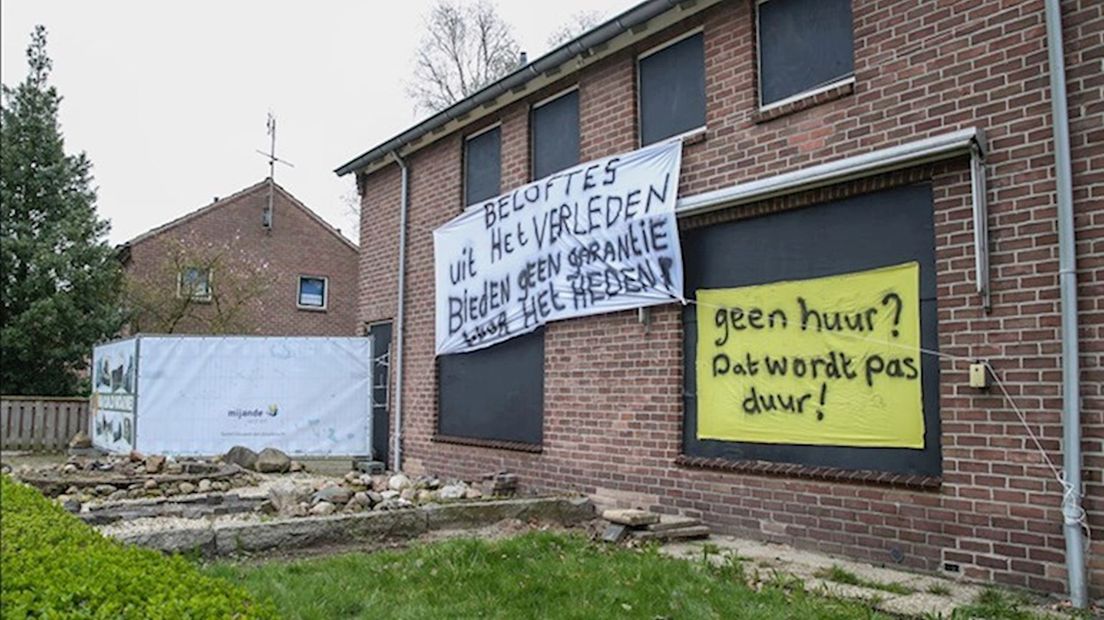 BELOFTES
uit Het VERLEDEN
BIEDEN GEEN GARANTIE
HET HEDEN!
geen huur?
Dat wordt pas
duur!
mijande